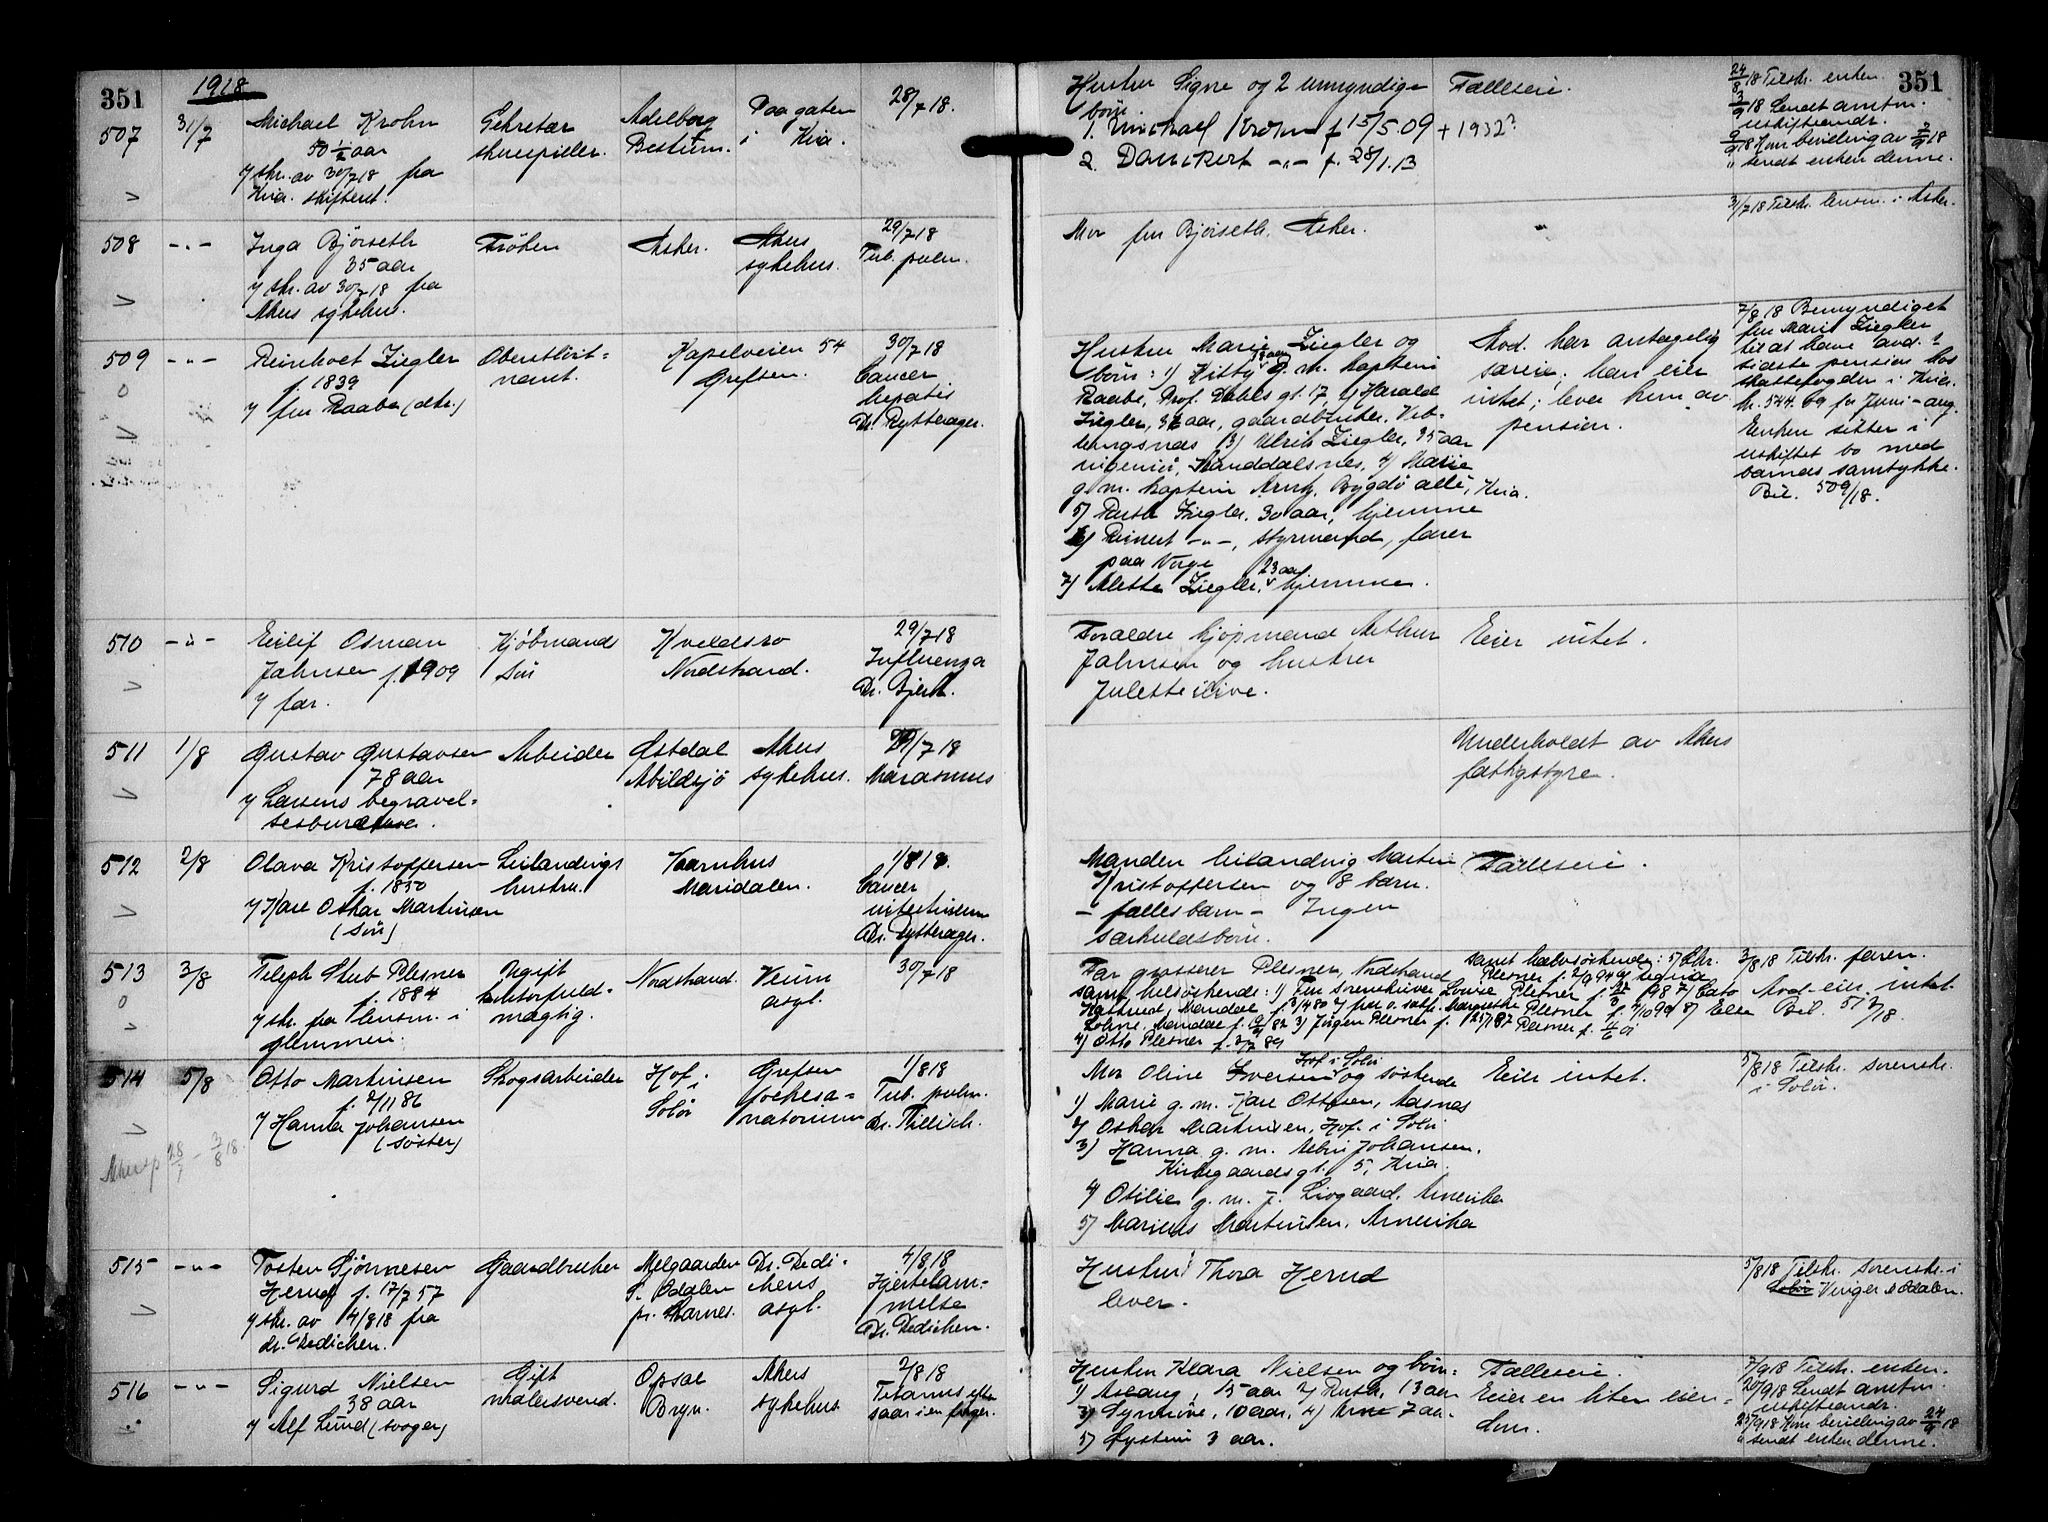 351
1918
507
31/7
Michael Krohn
50 1/2 aar
/ skr. av 30/7 18 fra
Kria. skifteret.
Sekretær
skuespiller.
Adelborg
Bestum.
Paa gaten
i Kria.
28/7 18.
508
-"-
Inga Bjørseth
35 aar
/ skr. av 30/7 18 fra
Akers sykehus.
Frøken
Asker.
Akers
sykehus.
29/7 18
Tub. pulm.
509
-"-
Reinholt Ziegler
f. 1839
/ fru Raabe (dtr.)
Oberstløit=
nant.
Kapelveien 54
Grefsen.
30/7 18
Cancer
hepatis
Dr. Rytterager.
510
-"-
Eilif Osman
Jahnsen f. 1909
/ far.
Kjøbmands
søn
Kveldsro
Nordstrand.
29/7 18
Influenza
Dr. Bjerk.
511
1/8
Gustav Gustavsen
78 aar
/ Larsens begravel-
sesburea.
Arbeider
Østdal
Abildsjø
Akers
sykehus.
29/7 18
Marasmus
512
2/8
Olava Kristoffersen
f. 1850
/ Kare Oskar Martinsen
(søn)
Leilændings
hustru.
Kaarnhus
Maridalen.
1/8 18.
Cancer
intestinum
Dr. Rytterager.
513
3/8
Teleph Stub Plesner
f. 1884
/ skr. fra lensm. i
Glemmen.
Ugift
kontorfuld=
mægtig.
Nordstrand.
Veum
asyl.
30/7 18
514
5/8
Otto Martinsen
f. 2/11 86
/ Hanna Johansen
(søster)
Akersp 28/7 - 3/8 18.
Skogsarbeider
Hof i
Solør
Grefsen
folkesa=
natorium
1/8 18
Tub. pulm.
dr. Thillisch.
515
-"-
Tosten Sjønnesen
Hernd f. 17/7 57
/ skr. av 4/8 18 fra
dr. Dedichen.
Gaardbruker
Melgaarden
S. Odalen
pr. Skarnes.
Dr. Dedi-
chens
asyl.
4/8 18
Hjertelam=
melse
Dr. Dedichen.
516
-"-
Sigurd Nielsen
38 aar
/ Alf Lund (svoger)
Gift
malersvend.
Opsal
Bryn.
Akers
sykehus
2/8 18
Tetanus efter
saar i en finger.
351
Hustru Signe og 2 umyndige
børn.
1. Michael Krohn f 15/5.09 + 1932?
2. Danckert -"- f. 28/1.13
Fælleseie.
24/8 18 Tilskr. enken.
3/9 18 Sendt amtm.
uskifteandr.
9/9 18 Kom bevilling av 7/9 18
" sendt enken denne.
Mor fru Bjørseth. Asker.
"
31/7 18 Tilskr. lensm. i Asker.
Hustru Marie Ziegler og
børn: 1) Kitty g. m. kaptein
Raabe, Prof. Dahls gt. 17, 2) Harald
Ziegler, 36 aar, gaardbruker, Veb-
lungsnes 3) Ulrik Ziegler, 35 aar
ingeniør, Kanddalsnes, 4) Marie
g. m. kaptein Arntz, Bygdø allé, Kria.
5) Ruth Ziegler. 30 aar, hjemme
6) Reinert -"-, styrmand, farer
paa Norge
7) Alette Ziegler, 23 aar hjemme.
Avd. har antagelig
særeie; han eier
intet; lever kun av
pension.
7/8 18 Bemyndiget
fru Marie Ziegler
til at hæve avd.s
sidste pension hos
skattefogden i Kria.
kr. 544.69 for juni-aug.
Enken sitter i
uskiftet bo med
barnas samtykke.
Bil. 509/18.
Forældre kjøpmand Arthur
Jahnsen og hustru
Juleste ilive.
Eier intet.
Underholdt av Akers
fattigstyre.
Manden leilænding Martin
Kristoffersen og 8 barn.
- fællesbarn - Ingen
særkuldsbørn.
Fælleseie.
Far grosserer Plesner, Nordstrand
samt helsøskende:
samt halvsøskende: 5) Chr.
Plesner f. 2/9 94 6) Signe
Louise Plesner
7) Cato
Plesner f. 9/10 99 8) Ellen
Plesner f. 4/6 01
3) Jørgen Plesner f. 25/7 87
4) Otto Plesner f. 2/7 89
3/8 18 Tilskr. faren.
Avd. eier intet.
Bil. 513/18.
Mor Oline Iversen, Hof i Solør og søskende
1) Marie g. m. Kare Ottesen, Aasnes
2) Oskar Martinsen, Hof i Solør
3) Hanna g. m. Albin Johansen,
Kirkegaardsgt. 5, Kria.
4) Otilie g. m. J. Livgaard, Amerika
5) Marius Martinsen, Amerika
Eier intet.
5/8 18 Tilskr. sorenskr.
i Solør.
Hustru Thora Hernd
lever.
5/8 18 Tilskr. sorenskr. i
Solør Vinger & Odalen.
Hustru Klara Nielsen og børn:
1) Aslaug, 15 aar 2) Ruth, 13 aar
3) Synnøve, 10 aar, 4) Arne 7 aar
5) Øystein 3 aar.
Fælleseie.
Eier en liten eien=
dom.
7/9 18 Tilskr. enken.
20/9 18 Sendt amtm.
uskifteandr.
25/9 18 Kom bevilling av 24/9 18
" sendt enken denne.